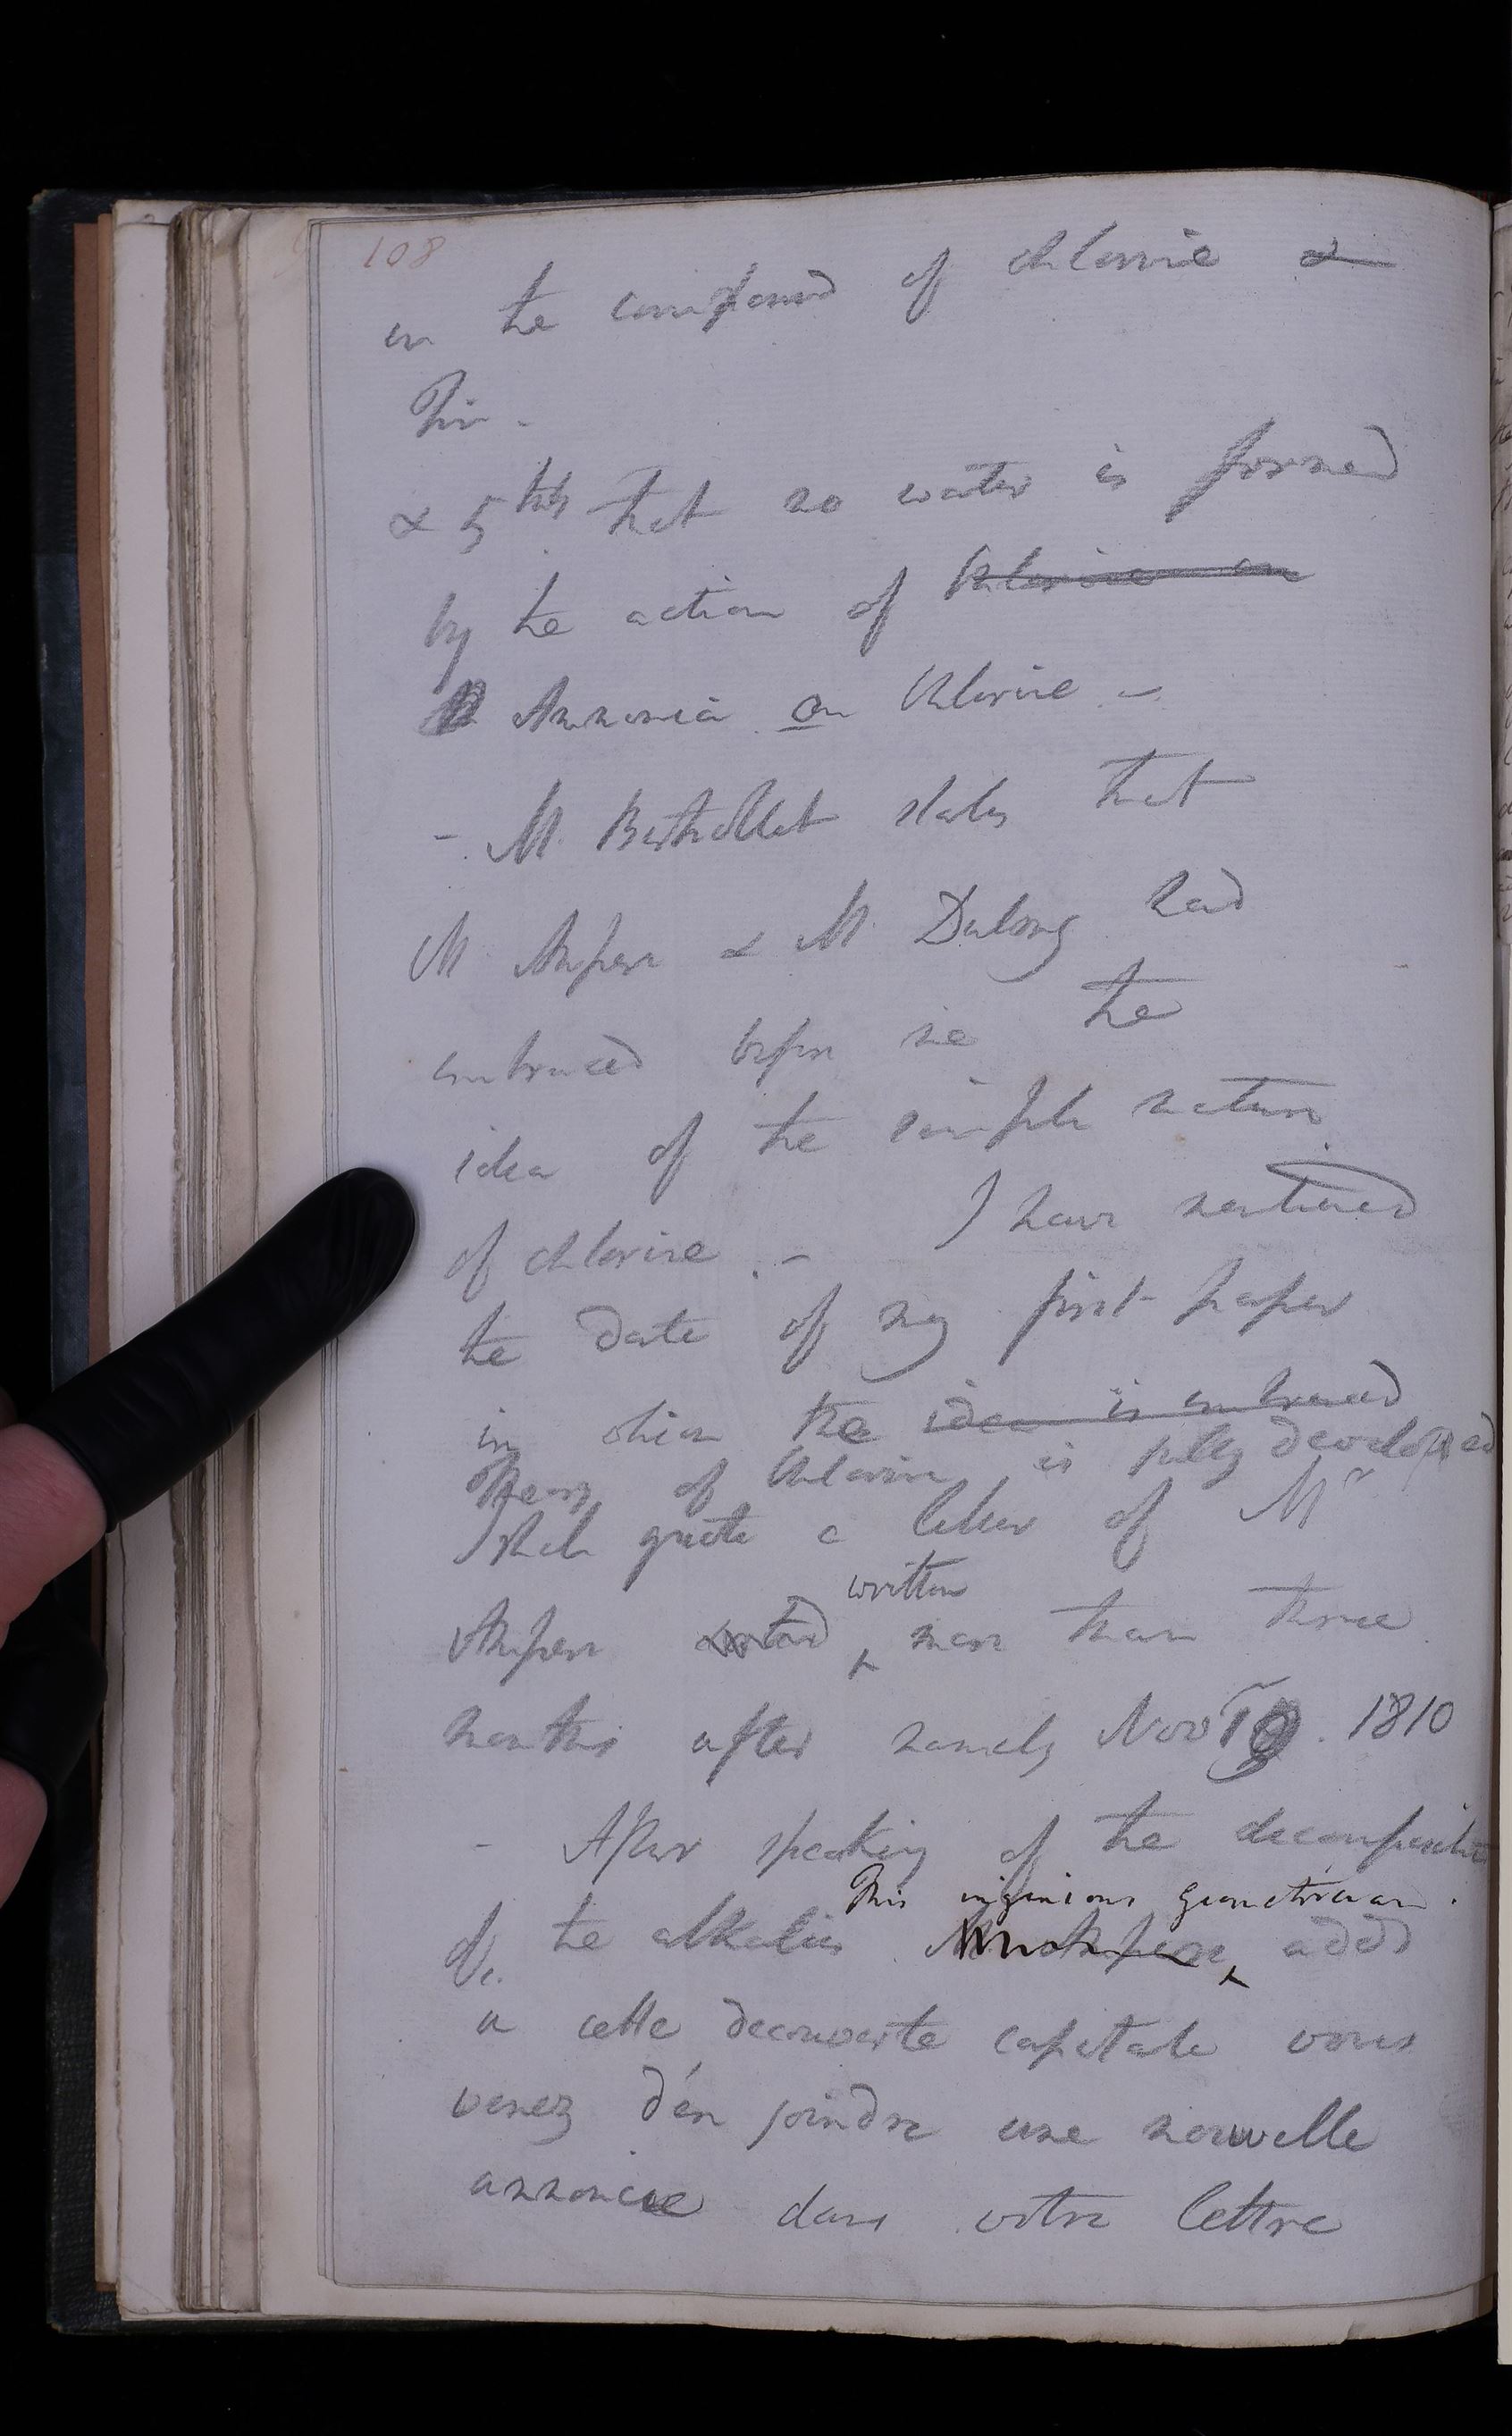 108
in the compound of chlorine &
Tin -
& 5thly that no water is formed
by the action of Chlorine on
Ammonia on Chlorine -
- M. Berthollet states that
M Ampere & M. Dulong had
embraced before me the
idea of the simple nature
of chlorine. - I have mentioned
the date of my first paper
in which the idea is embraced
Theory of Chlorine is fully developed
I shall quote a letter of Mr
written
Ampere dated more than three
months after namely Novr 1810
- After speaking of the decomposition
This inginious Geometrician
of the alkalies M Ampere adds
a cette decouverte capitale vous
venez d'én joindre une nouvelle
annoncee dans votre lettre